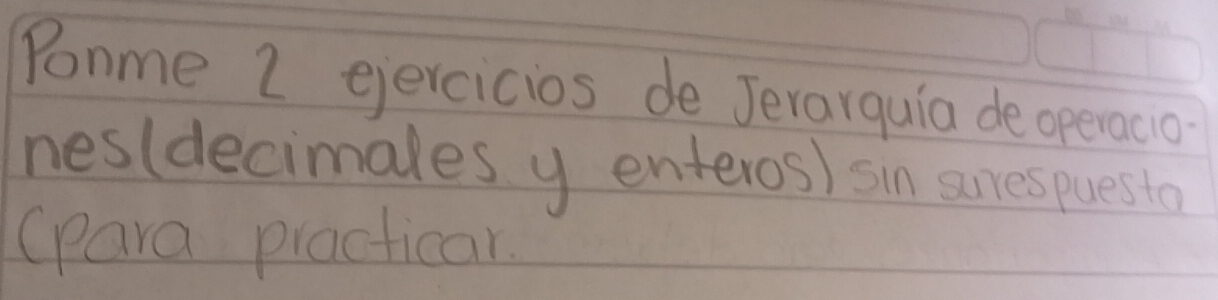 Ponme 2 ejercicios de Jerarquía de operacio-
nes(decimales y enteros) sin su respuesta
(para practicar.